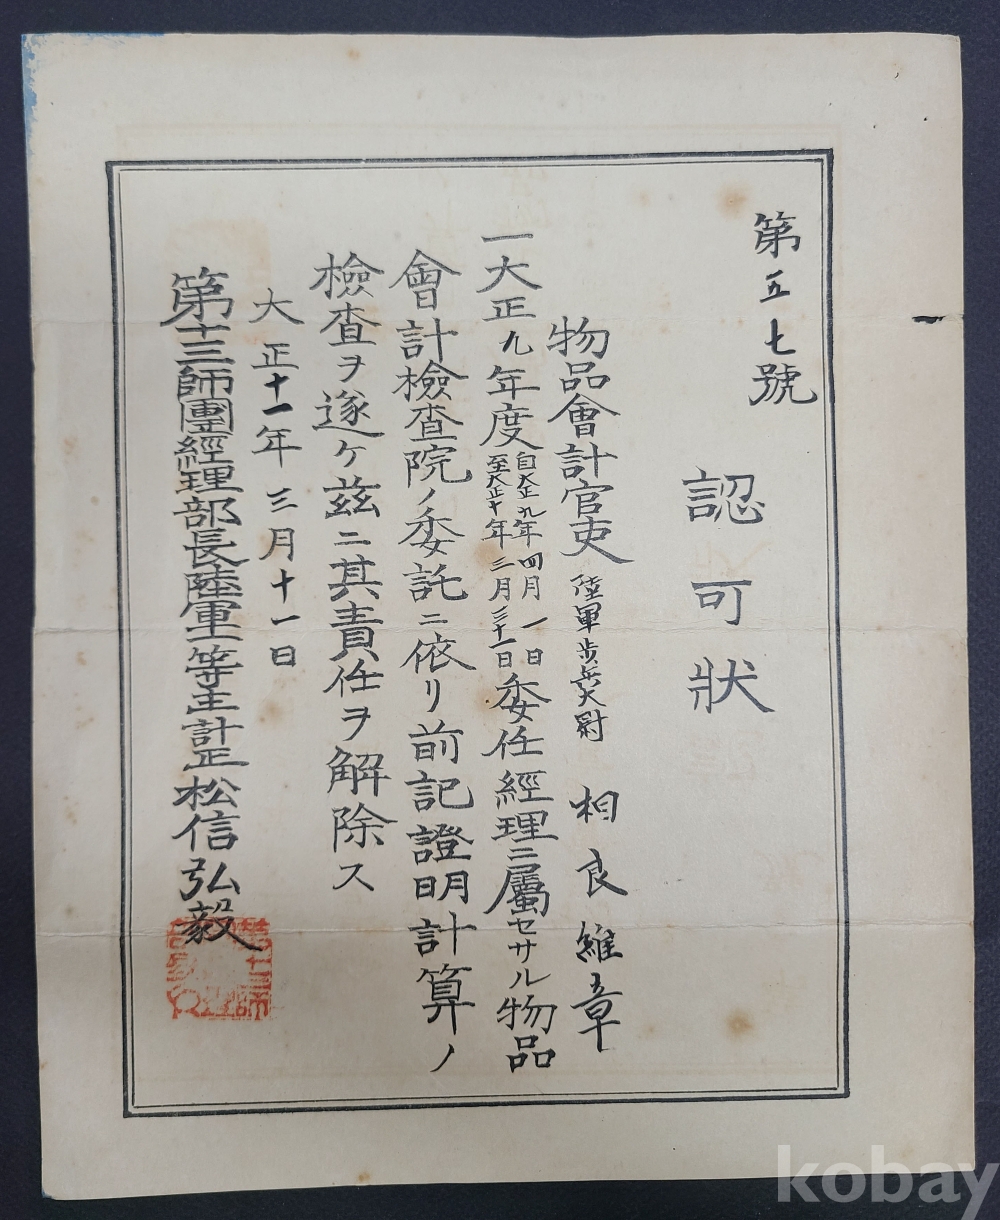 第五七號
認可狀
物品會計官吏 陸軍步兵大尉 相良維章
一大正九年度 自大正九年四月一日 至大正十年三月三十一日 委任經理ニ屬セサル物品
會計檢查院ノ委託ニ依リ前記證明計算ノ
檢查ヲ遂ケ茲ニ其責任ヲ解除ス
大正十一年三月十一日
第十三師團經理部長陸軍一等主計正松信弘毅
kobay